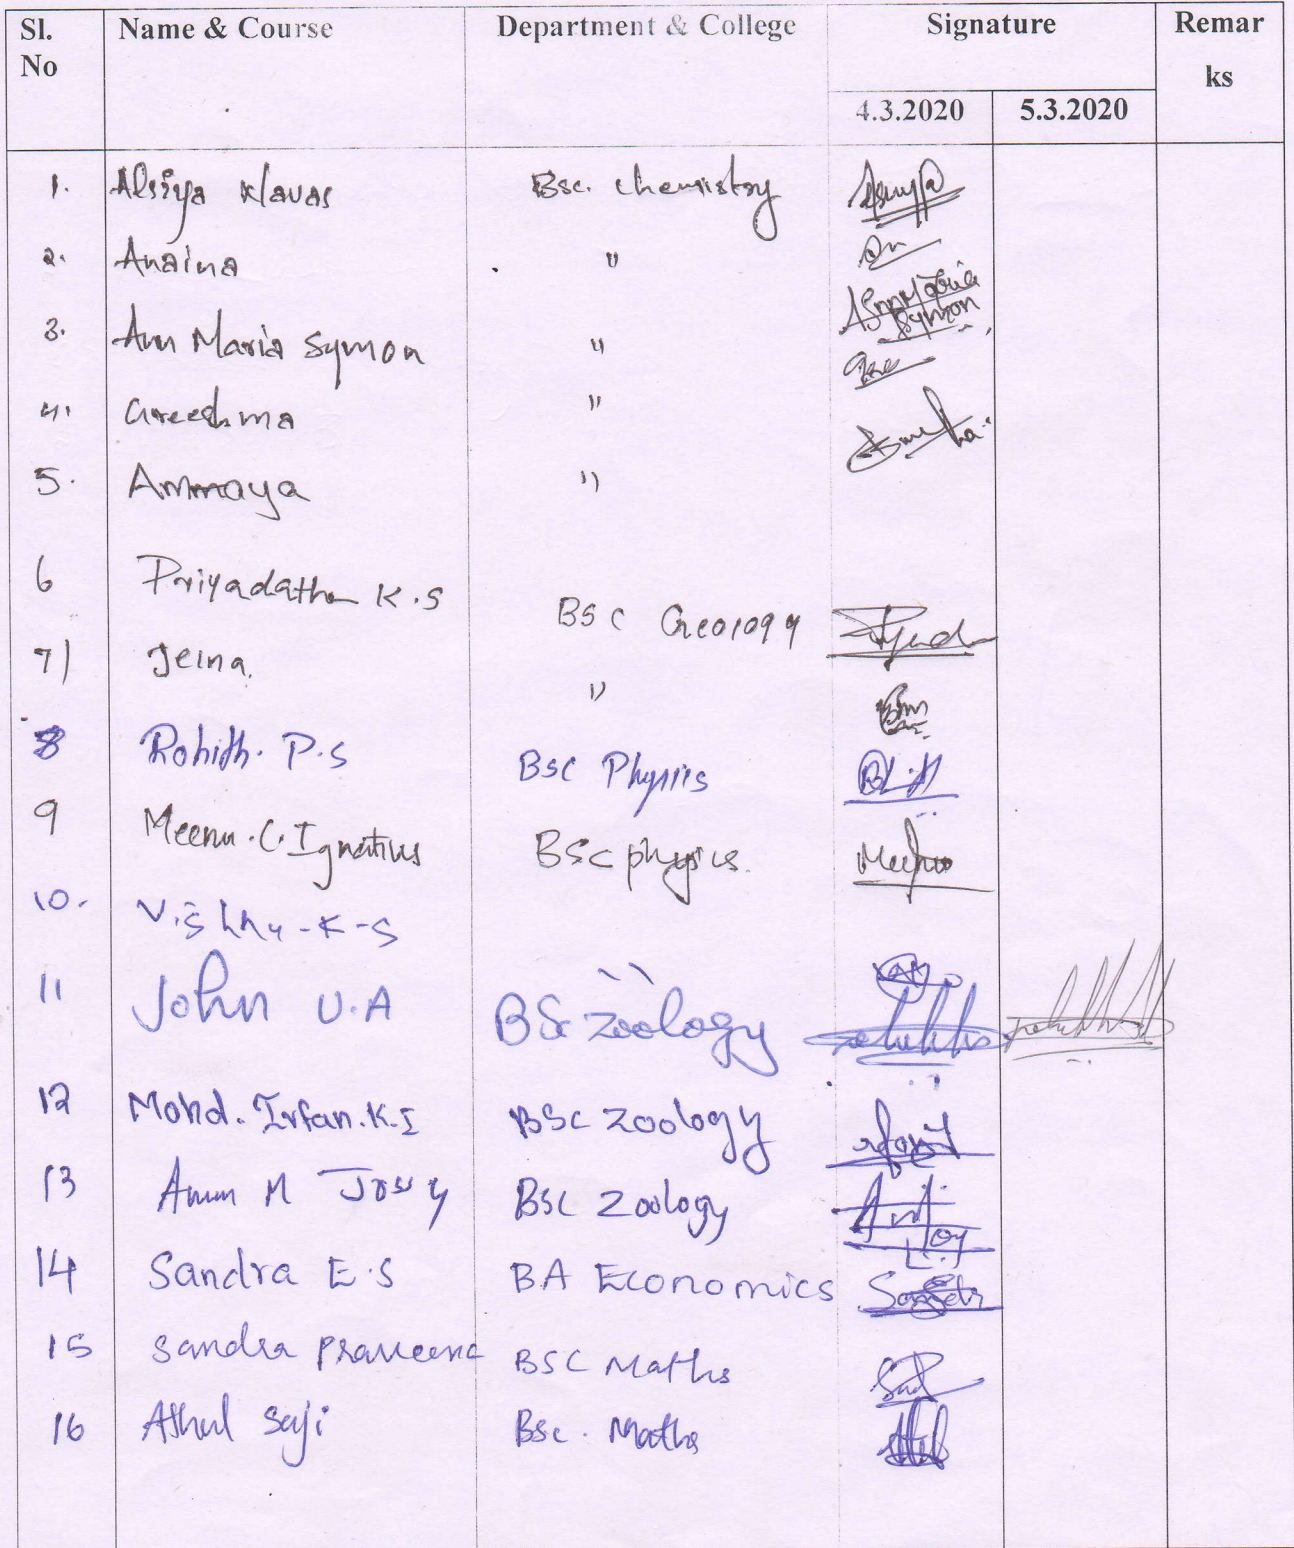 Sl. No Name & Course Department & College Signature Remar ks
4.3.2020 5.3.2020
1. Alsiya Navas Bsc. chemistry
2. Anaina "
3. Ann Maria Symon " Ann Maria Symon
4. Greeshma "
5. Ammaya "
6 Priyadatha K.S BSC Geology
7) Jeina. "
8 Rohith. P.S BSC Physiis
9 Meenu.C.Ignatius BSc physics. Meenu
10. Vishnu-K-S "
11 John U.A BSc Zoology
12 Mohd. Irfan.K.I BSC Zoology
13 Amm M Josy BSC Zoology
14 Sandra E.S BA Economics
15 Sandra Praveena BSC Maths
16 Athul Saji Bsc. Maths